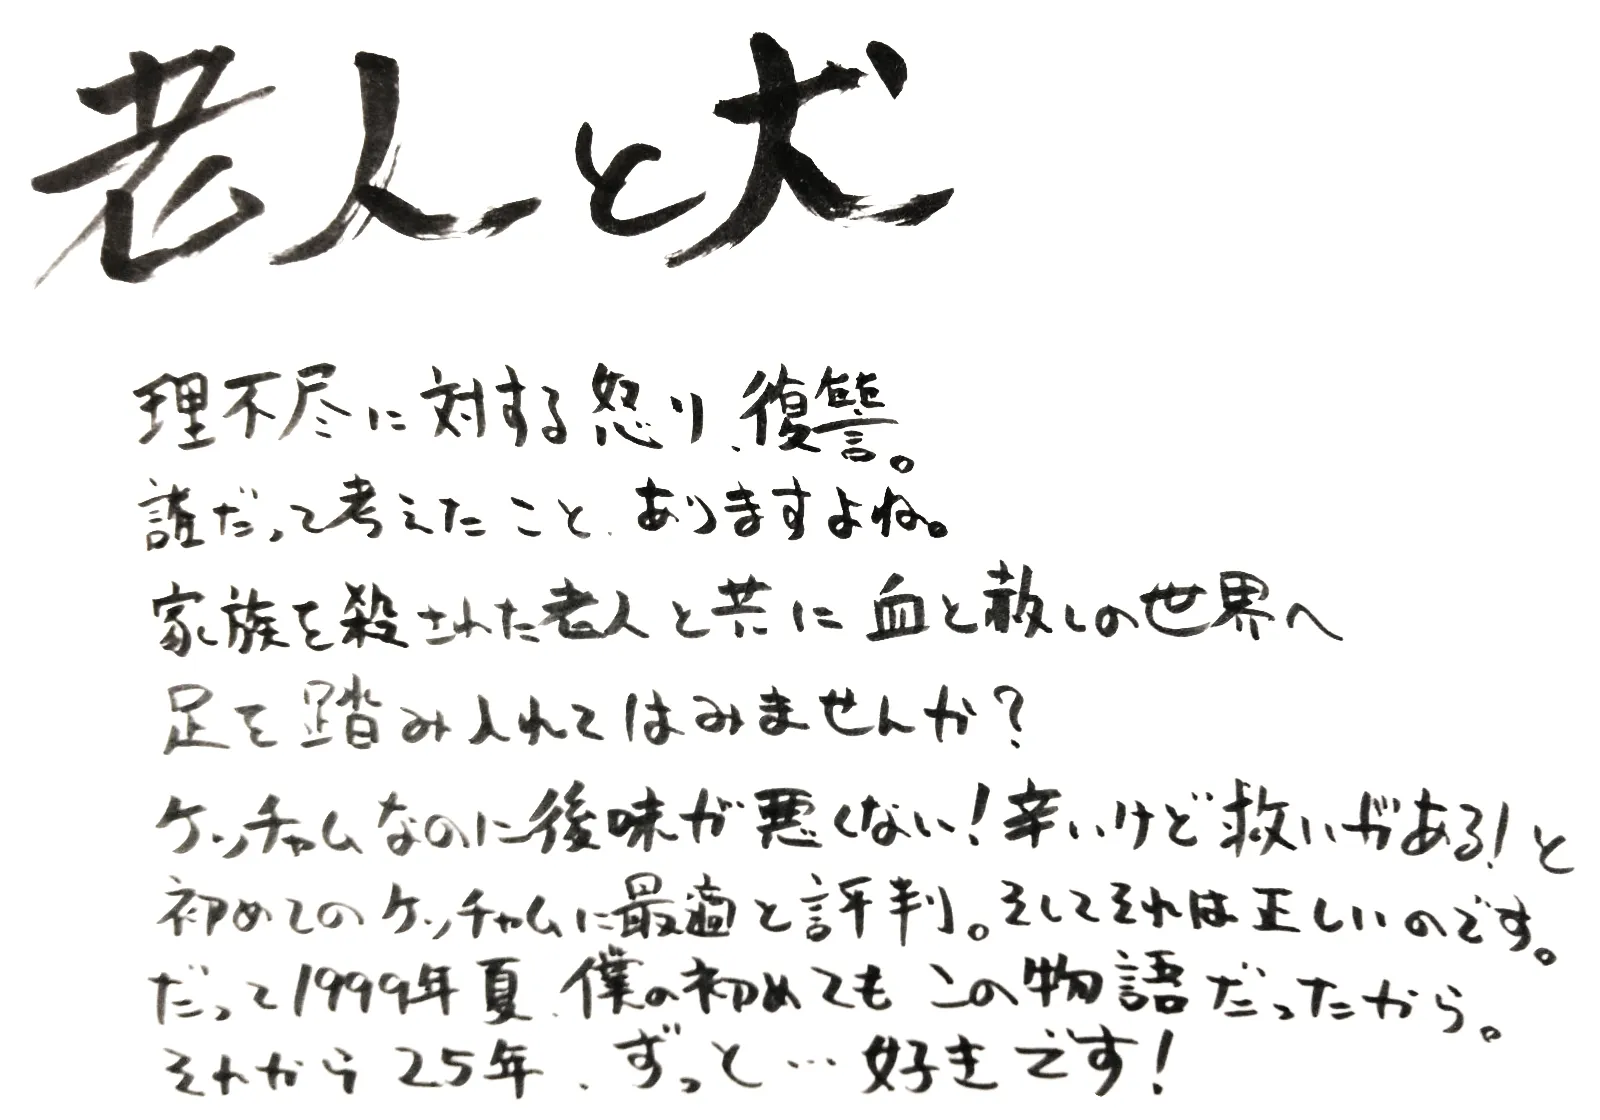 老人と犬
理不尽に対する怒り、復讐。
誰だって考えたこと、ありますよね。
家族を殺された老人と共に血と赦しの世界へ
足を踏み入れてはみませんか？
ケッチャムなのに後味が悪くない！辛いけど救いがある！と
初めてのケッチャムに最適と評判。そしてそれは正しいのです。
だって1999年夏、僕の初めてもこの物語だったから。
それから25年、ずっと…好きです！